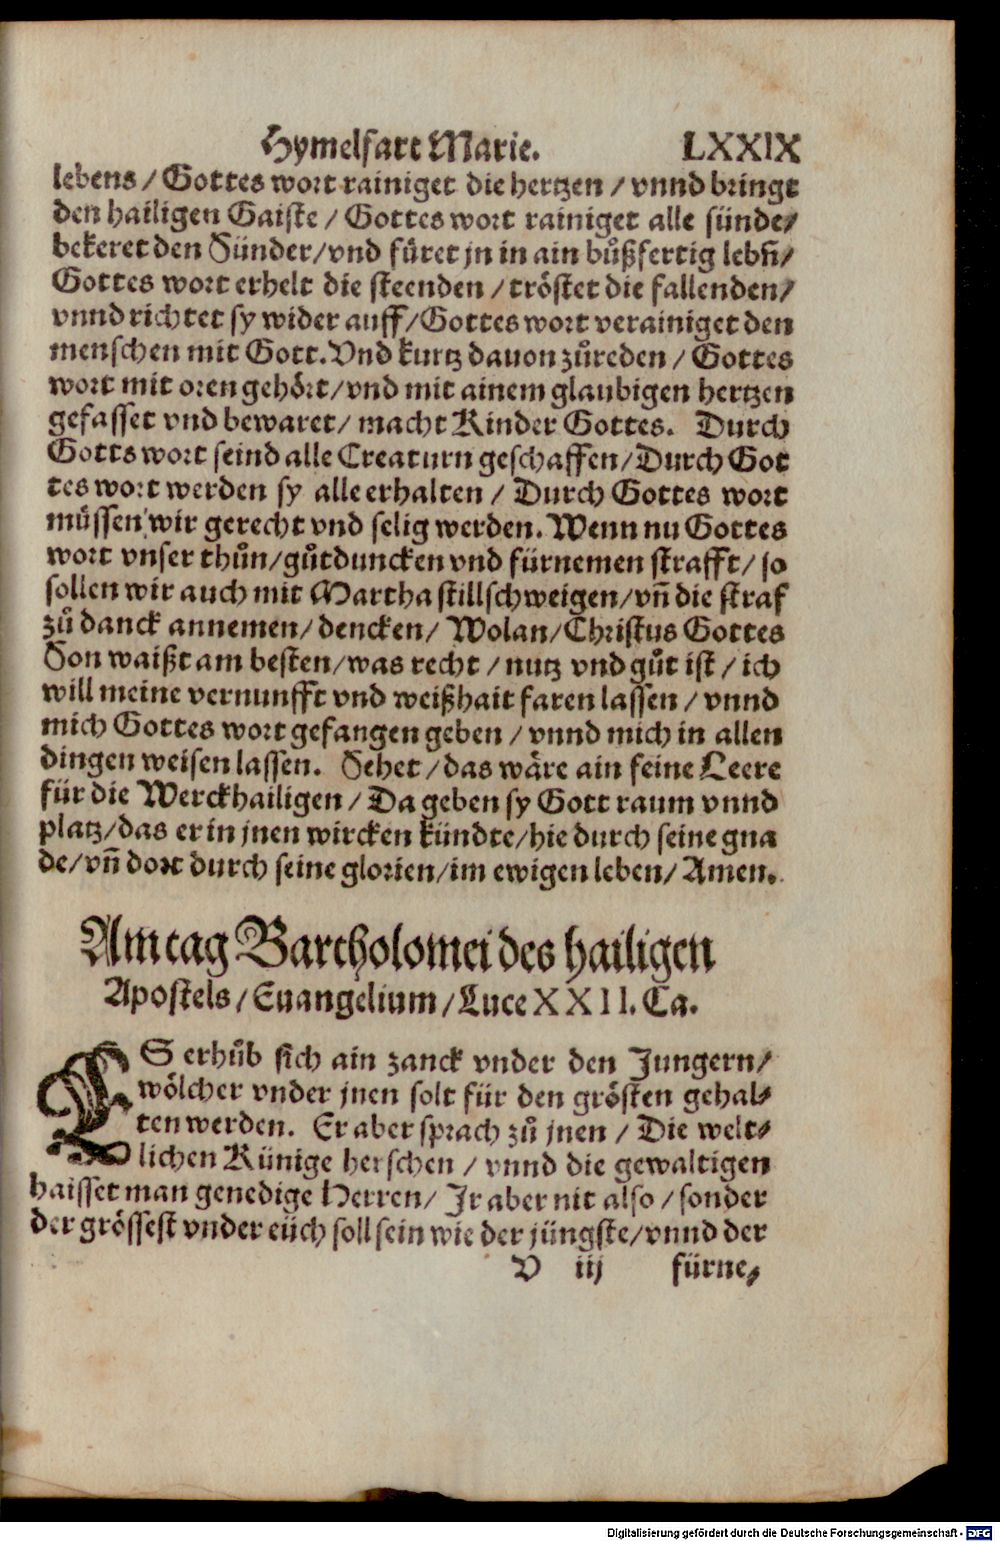 Hymelfart Marie. LXXIX
lebens / Gottes wort rainiget die hertzen / vnnd bringt
den hailigen Gaiste / Gottes wort rainiget alle sünde/
bekeret den Sünder/vnd fůret jn in ain bůßfertig lebñ/
Gottes wort erhelt die steenden / tröstet die fallenden/
vnnd richtet sy wider auff/Gottes wort verainiget den
menschen mit Gott. Vnd kurtz dauon zůreden / Gottes
wort mit oren gehört/vnd mit ainem glaubigen hertzen
gefasset vnd bewaret/ macht Kinder Gottes. Durch
Gotts wort seind alle Creaturn geschaffen/Durch Got
tes wort werden sy alle erhalten / Durch Gottes wort
můssen wir gerecht vnd selig werden. Wenn nu Gottes
wort vnser thůn/gůtduncken vnd fürnemen strafft/ so
sollen wir auch mit Martha stillschweigen/vñ die straf
zů danck annemen/ dencken/ Wolan/Christus Gottes
Son waißt am besten/was recht / nutz vnd gůt ist / ich
will meine vernunfft vnd weißhait faren lassen / vnnd
mich Gottes wort gefangen geben / vnnd mich in allen
dingen weisen lassen. Sehet / das wäre ain feine Leere
für die Werckhailigen / Da geben sy Gott raum vnnd
platz/das er in jnen wircken kündte/hie durch seine gna
de/vñ dort durch seine glorien/im ewigen leben/ Amen.
Am tag Bartholomei des hailigen
Apostels / Euangelium / Luce XXII. Ca.
ES erhůb sich ain zanck vnder den Jungern/
wölcher vnder jnen solt für den grösten gehal⸗
ten werden. Er aber sprach zů jnen / Die welt⸗
lichen Künige herschen / vnnd die gewaltigen
haisset man genedige Herren/ Jr aber nit also / sonder
der grössest vnder eüch soll sein wie der jüngste/vnnd der
V iij fürne⸗
Digitalisierung gefördert durch die Deutsche Forschungsgemeinschaft - DFG